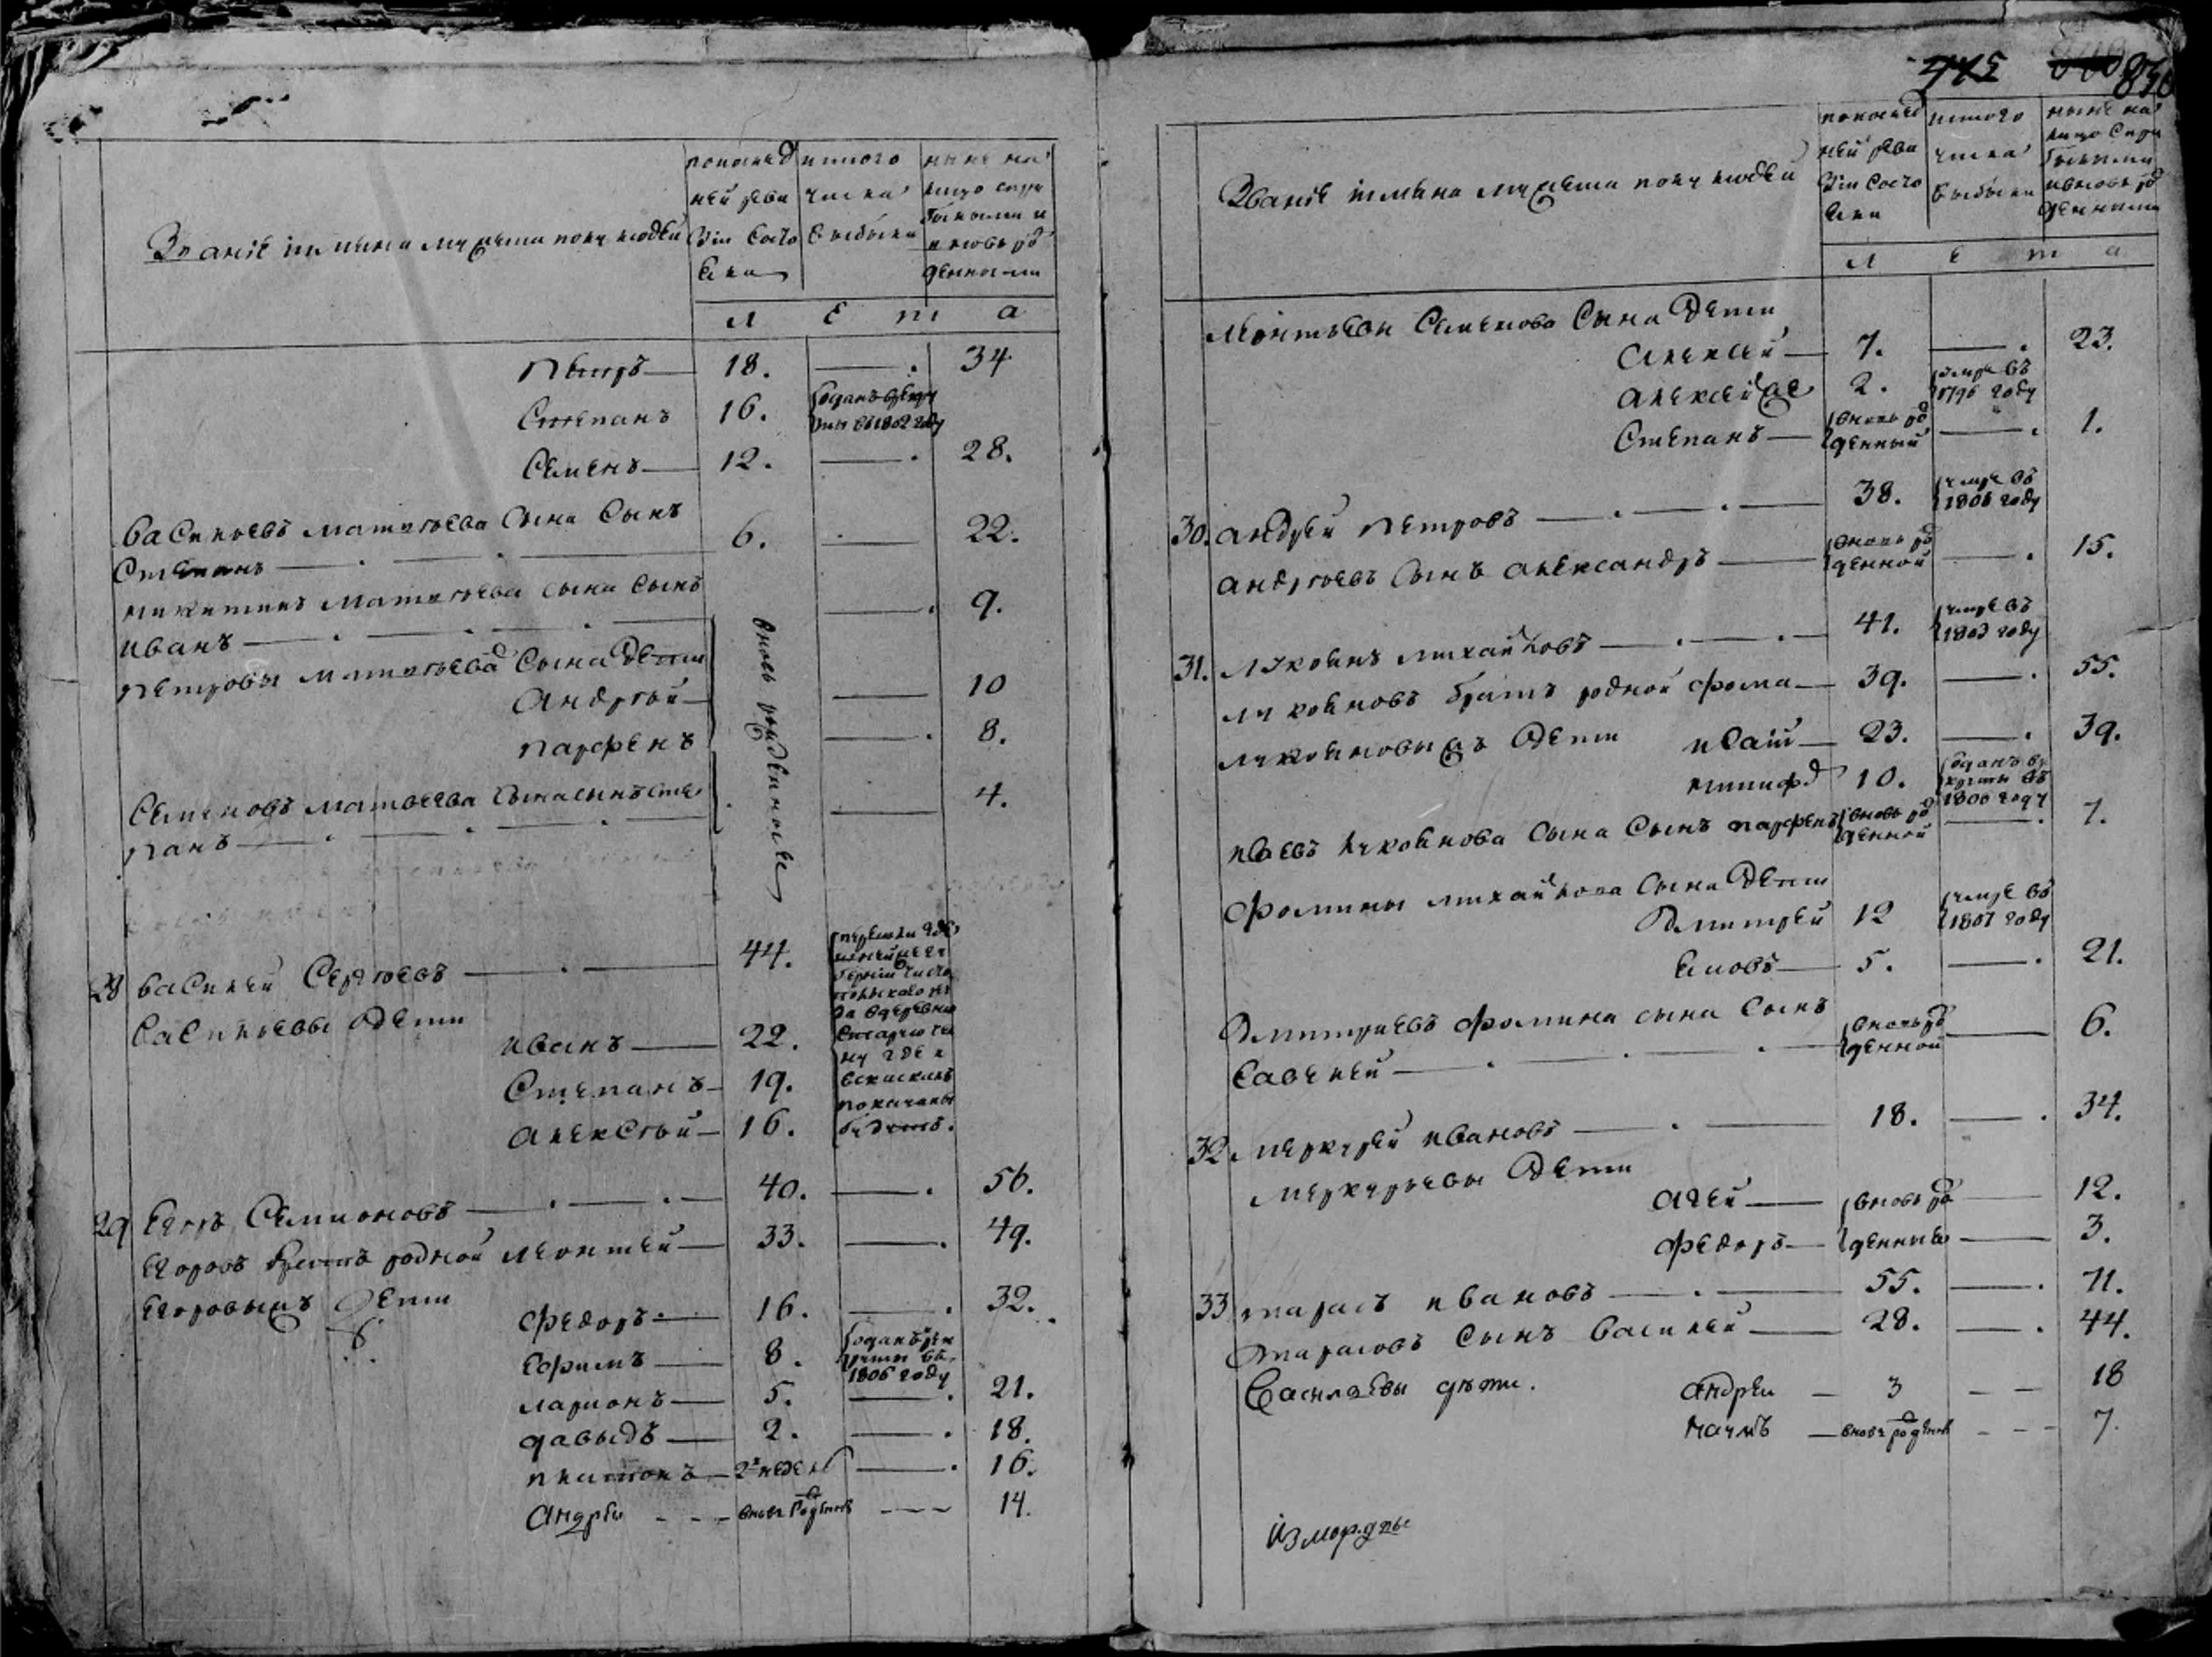 Званiе iимена мужеска полу людей
попослед
ней реви
зiи состо
яли
изтого
числа
выбыли
ныне на
лицо спри
былыми и
вновь ро
жденными
л е т а
Петръ 18. — 34
Степанъ 16. отданъ врекру
ты въ 1802 году
Семенъ 12. — 28.
Васильевъ Матвеева сына сынъ
Степанъ 6. — 22.
Никитинъ Матвеева сына сынъ
Иванъ — 9.
Петровы Матвеева сына дети
Андрей — 10
Парфенъ — 8.
Семеновъ Матвеева сына сынъ Сте
панъ — 4.
вновь рожденные
28 Василей Сергеевъ — 44.
Васильевы дети
Иванъ — 22.
Степанъ — 19.
Алексей — 16.
показаны
будутъ.
29 Егоръ Семионовъ — 40. — 56.
Егоровъ братъ родной Леонтей — 33. — 49.
Егоровыхъ дети
Федоръ — 16. — 32.
Ефимъ — 8. отданъ врек
руты въ
1806 году
Ларионъ — 5. — 21.
Давыдъ — 2. — 18.
Платонъ — 2х недель — 16.
Андрей — вновь рожденъ — 14.
775 836
Званiе iимена мужеска полу людей
попослед
ней реви
зiи состо
яли
изтого
числа
выбыли
ныне на
лицо спри
былыми
ивновь ро
жденными
л е т а
Леонтьевы Семенова сына дети
Алексей — 7. — 23.
Алексей же 2. умре въ
1796 году
Степанъ — вновь ро
жденный — 1.
30. Андрей Петровъ — 38. умре въ
1806 году
Андреевъ сынъ Александръ — вновь ро
жденной — 15.
31. Лукоянъ Михайловъ — 41. умре въ
1803 году
Лукояновъ братъ родной Фома — 39. — 55.
Лукояновыхъ дети Ивай — 23. — 39.
10. отданъ въ ре
круты въ
1806 году
Иваевъ Лукоянова сына сынъ Парфенъ вновь ро
жденной — 7.
Фомины Михайлова сына дети
Дмитрей 12 умре въ
1807 году
Емовъ — 5. — 21.
Дмитриевъ Фомина сына сынъ
Савелей — вновь ро
жденной — 6.
32 Меркурей Ивановъ — 18. — 34.
Меркурьевы дети
Агей — вновь ро — 12.
Федоръ — жденные — 3.
33 Тарасъ Ивановъ — 55. — 71.
Тарасовъ сынъ Василей — 28. — 44.
Васильевы дети. Андрей — 3 — 18
Наумъ — вновь рожденъ — 7.
Из мордвы